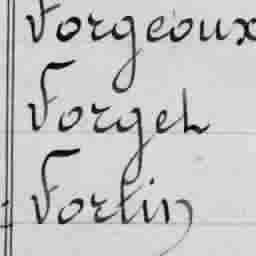 Forgeoux
Forget
Fortin